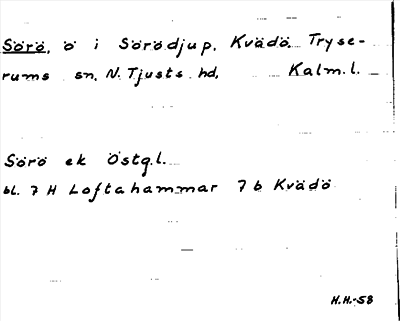 Sörö, ö i Sörödjup, Kvädö. Tryse-
rums sn, N. Tjusts hd, Kalm.l.
Sörö ek Östg.l.
bl. 7 H Loftahammar 7 b Kvädö
H.H.-58